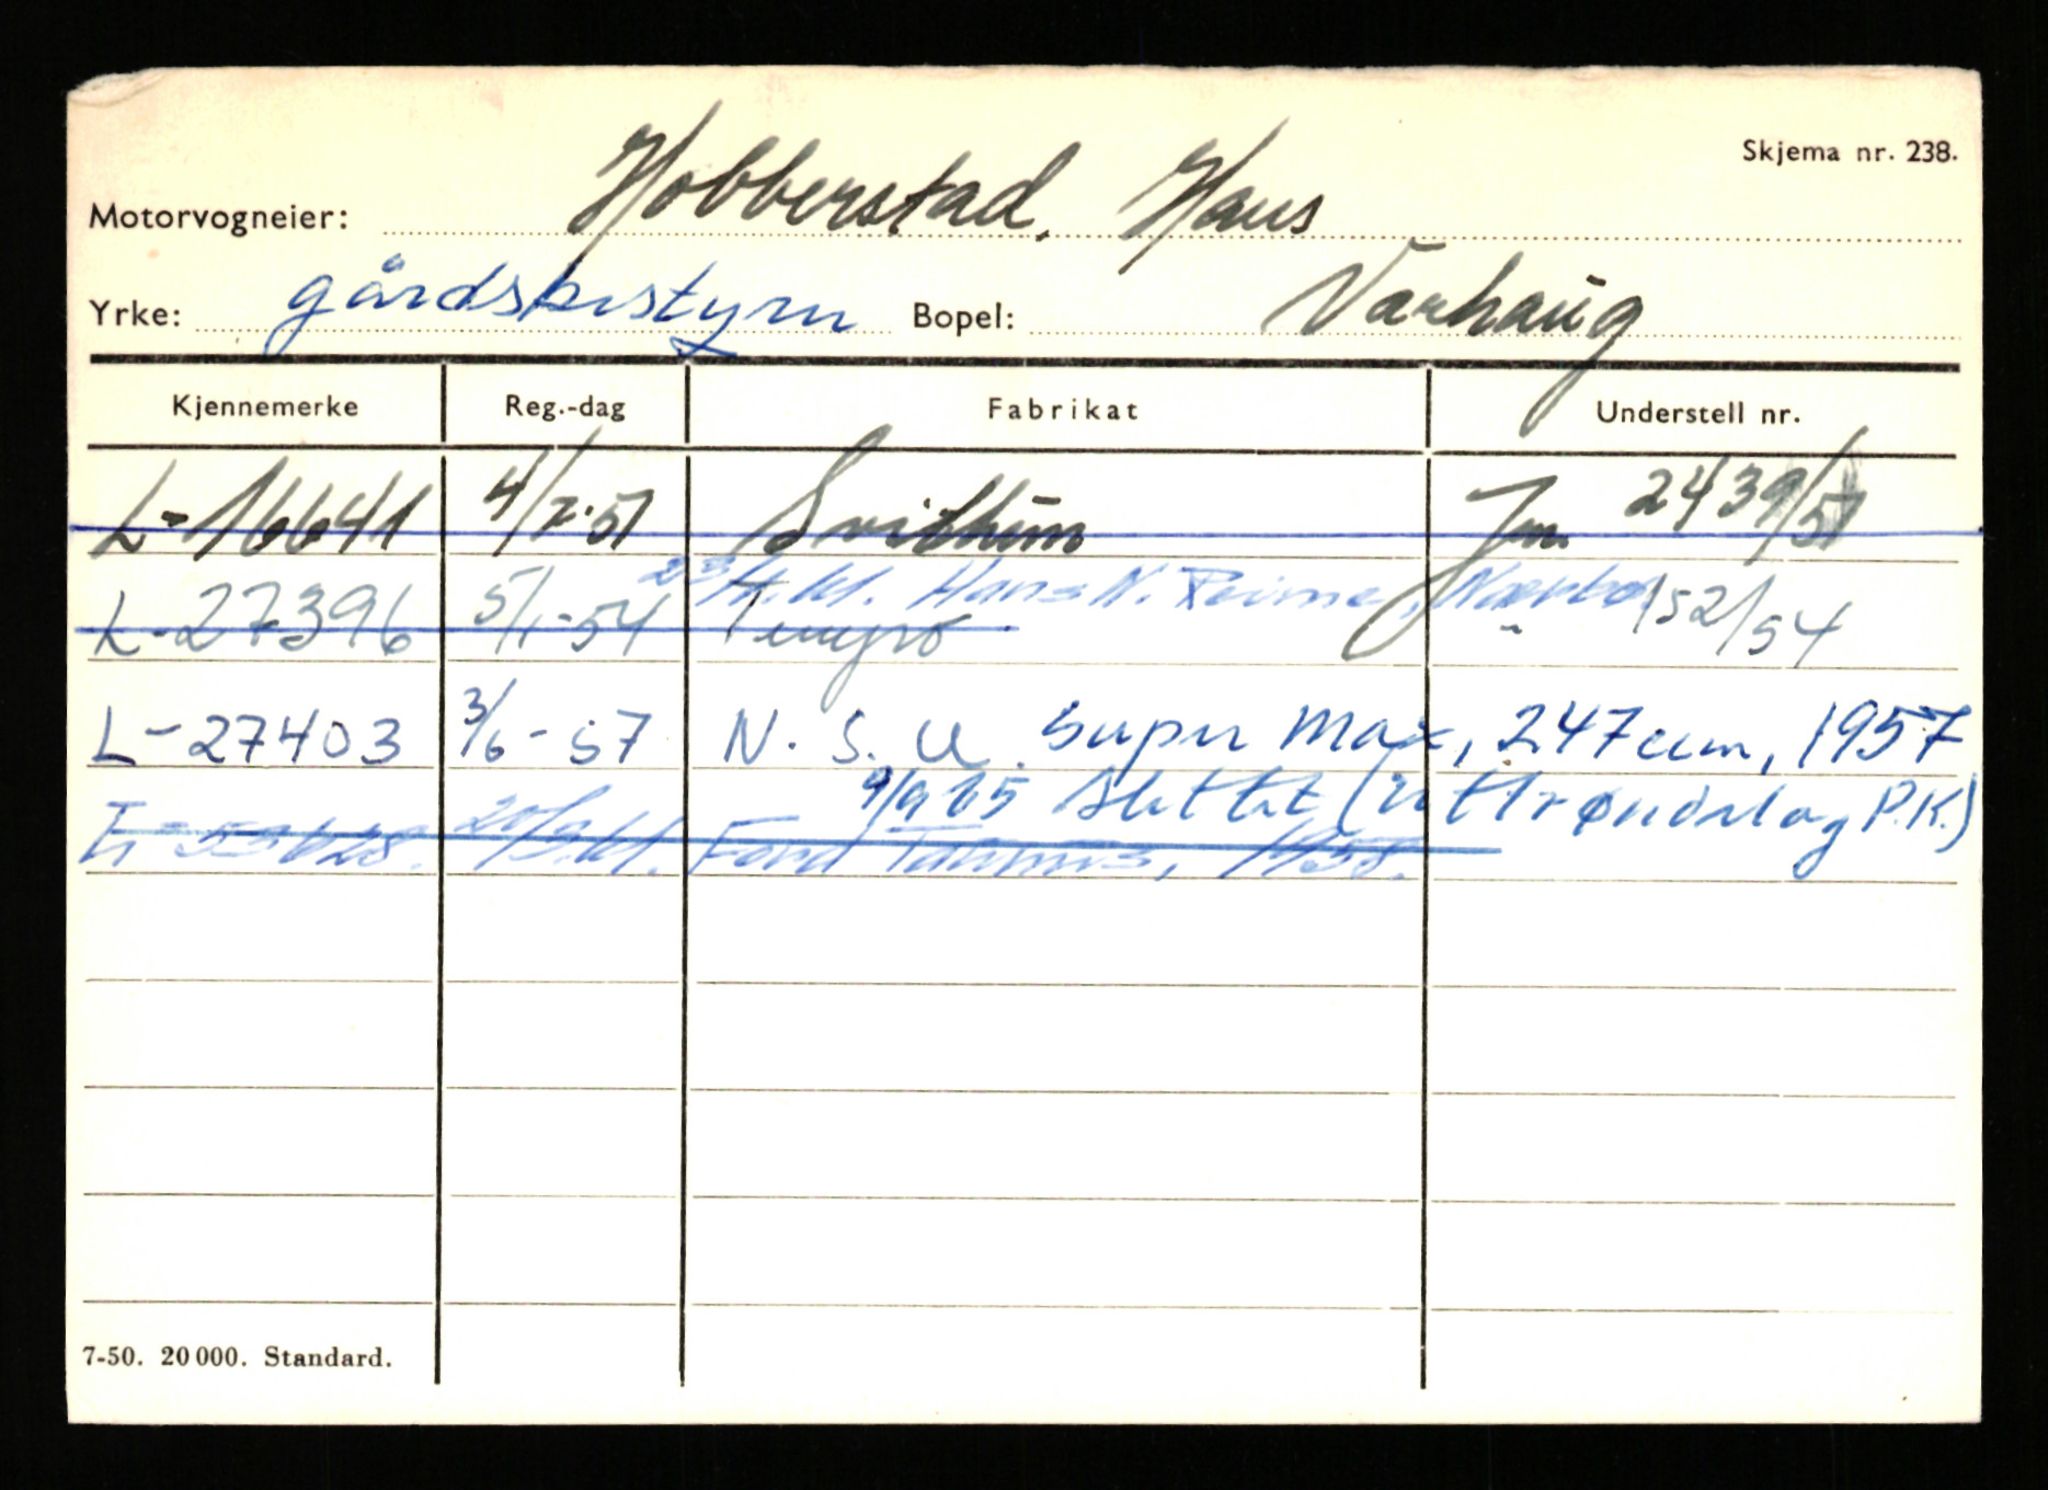 Skjema nr. 238.
Motorvogneier: Hobberstad, Hans
Yrke: gårdsbestyrer Bopel: Varhaug
Kjennemerke Reg.-dag Fabrikat Understell nr.
L-16641 4/7-51 Svithun Jm. 2439/51
23/ Hans N. Reime, Nærbø
L-27396 5/1-54 Tempo " 152/54
L-27403 3/6-57 N.S.U. Super Max, 247 ccm, 1957
9/9 65 slettet (u ttrøndelag P.K.)
L-53628. 20/3.61. Ford Taunus, 1958.
7-50. 20 000. Standard.